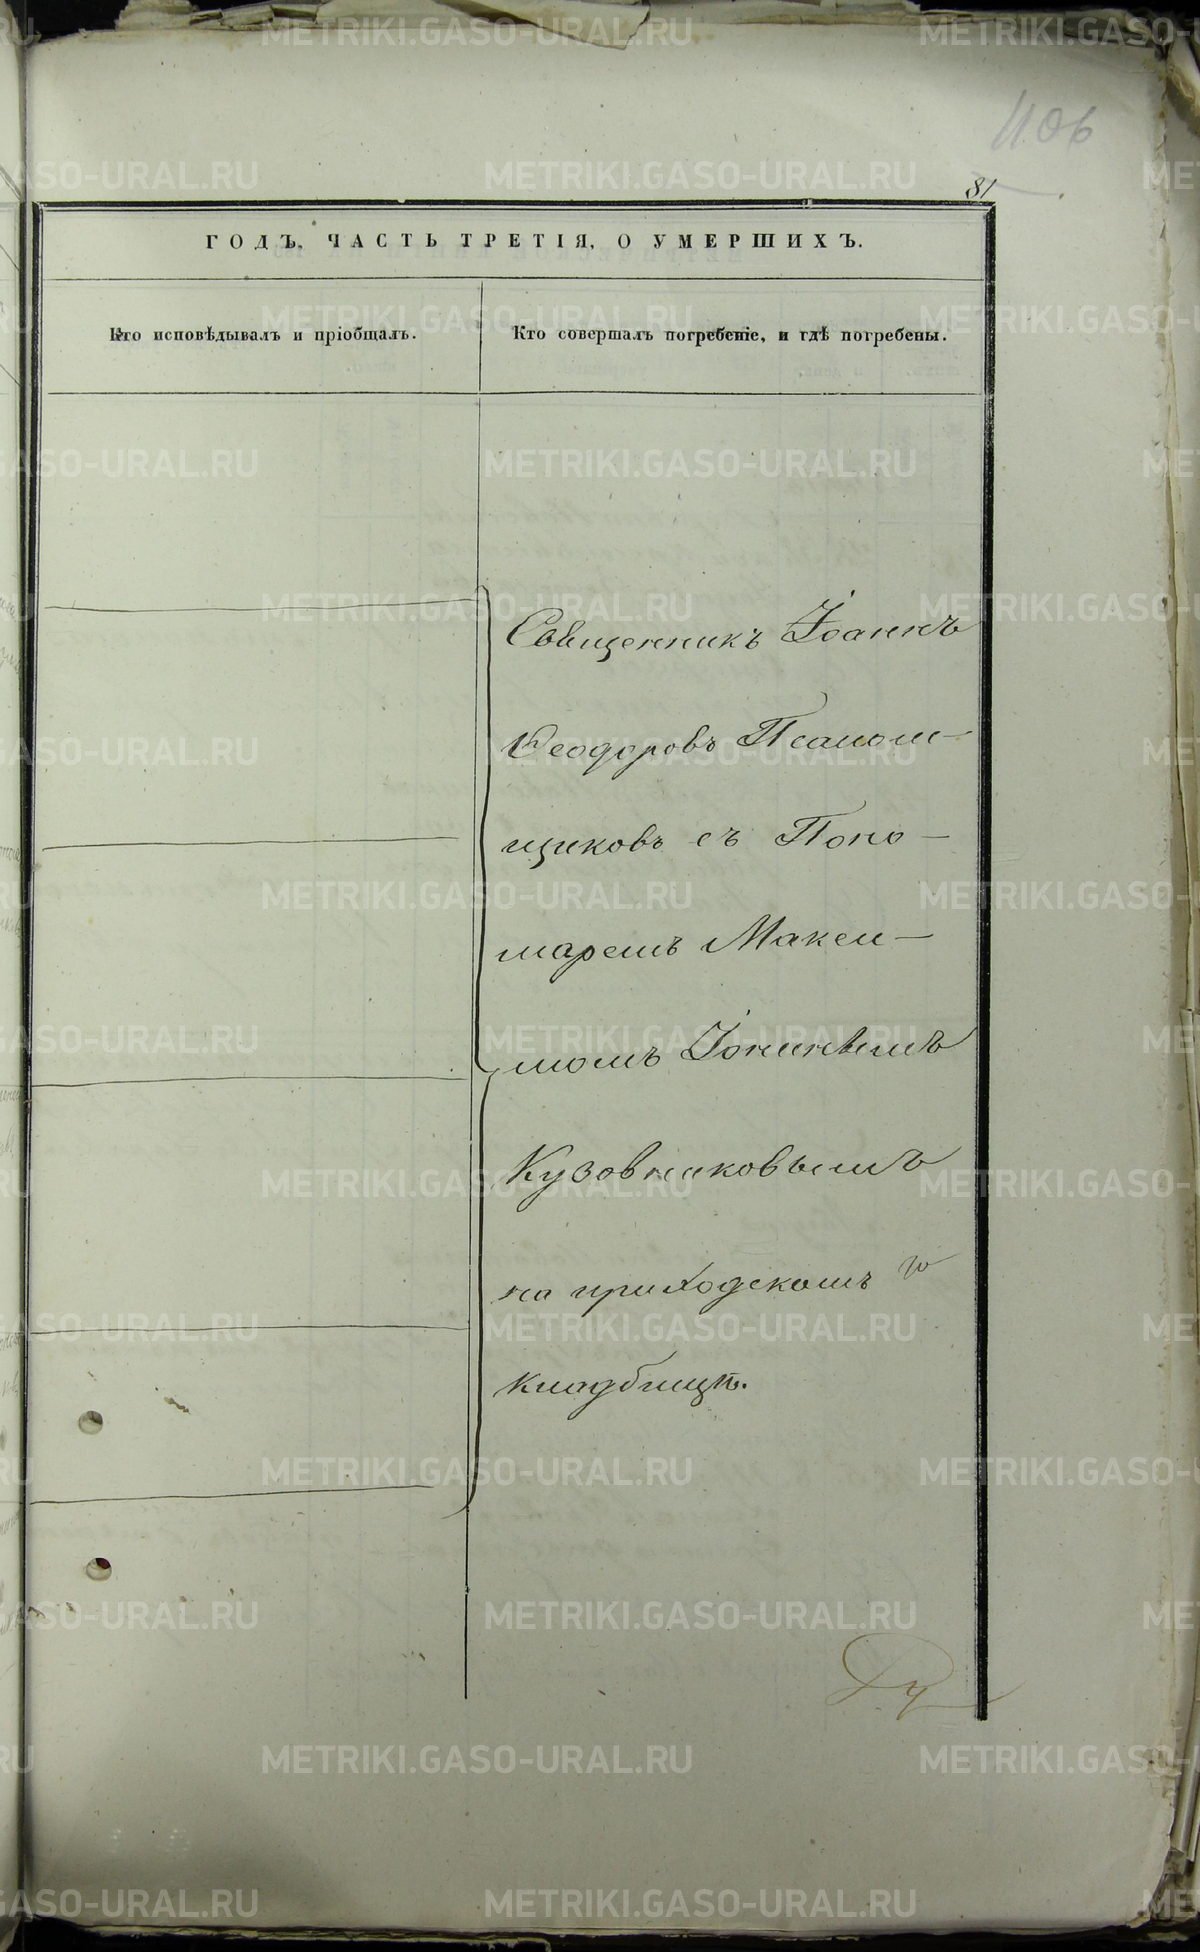 1106
81
ГОДЪ, ЧАСТЬ ТРЕТІЯ, О УМЕРШИХЪ.
Кто исповѣдывалъ и пріобщалъ.
Кто совершалъ погребеніе, и гдѣ погребены.
Священникъ Іоаннъ
Ѳеодоровъ Псалом-
щиковъ съ Поно-
маремъ Макси-
момъ Іонинымъ
Кузовниковымъ
на приходскомъ
кладбищѣ.
METRIKI.GASO-URAL.RU